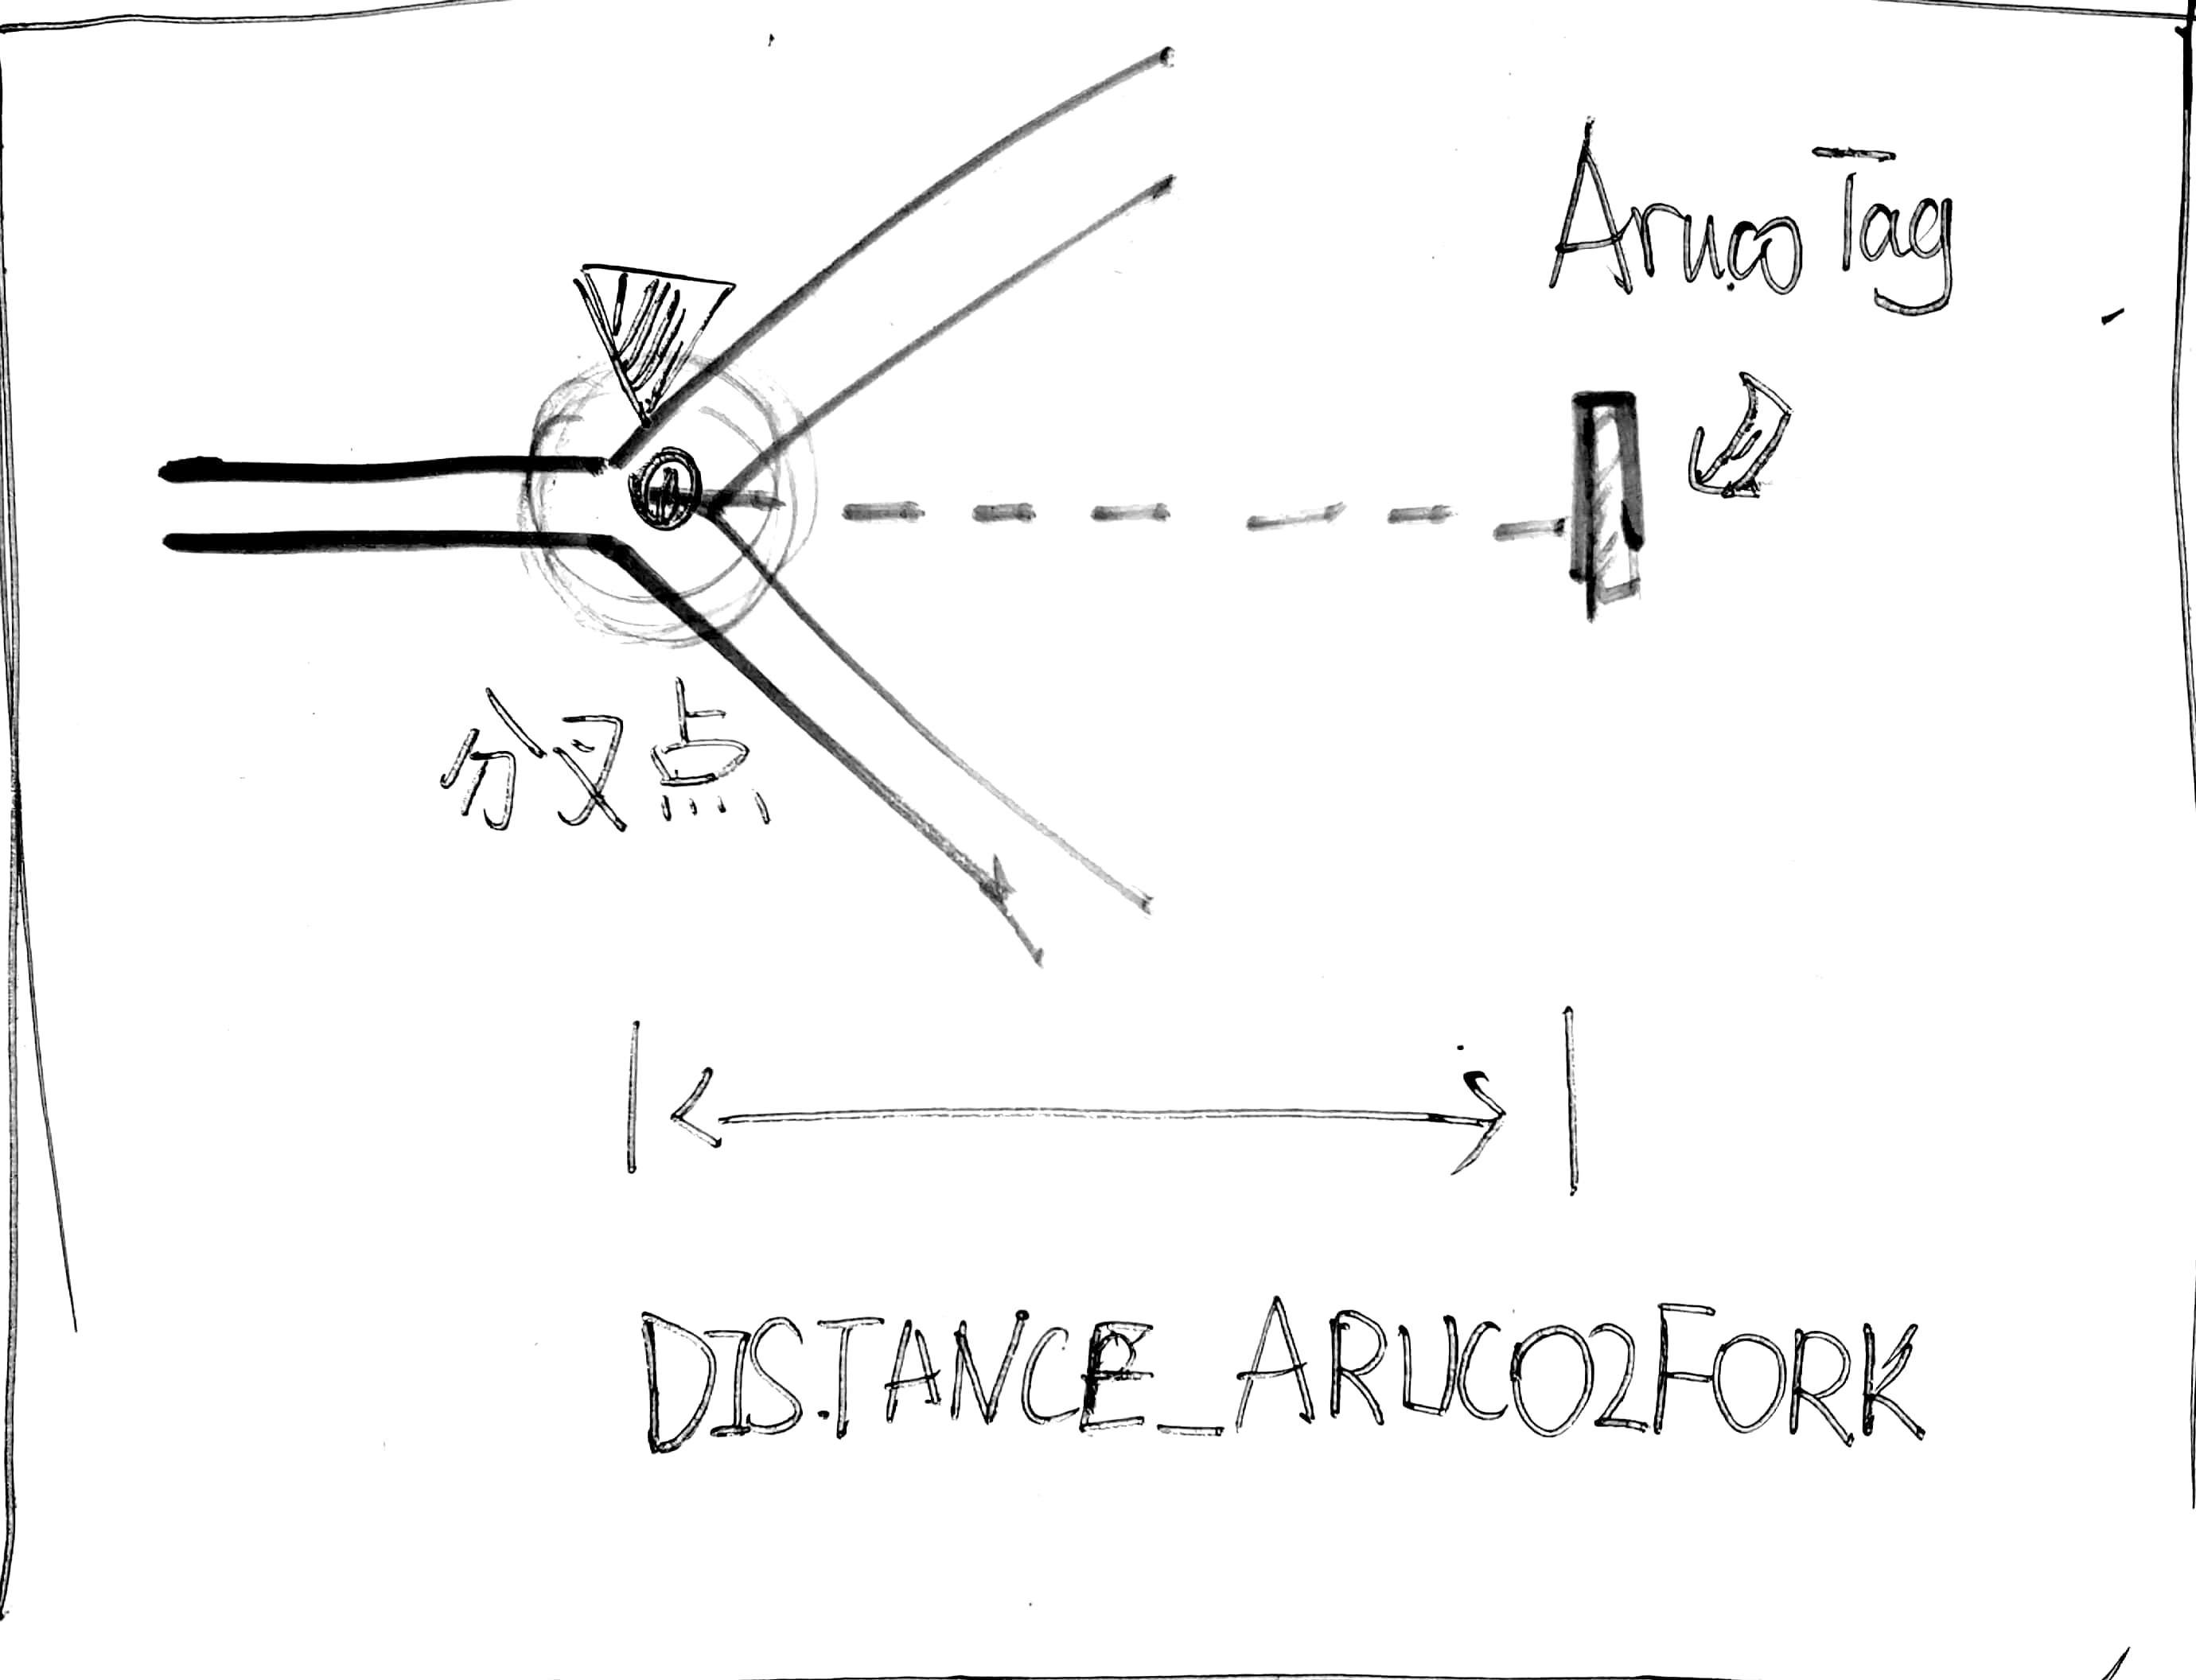 Aruco Tag
分叉点
DISTANCE_ARUCO2FORK